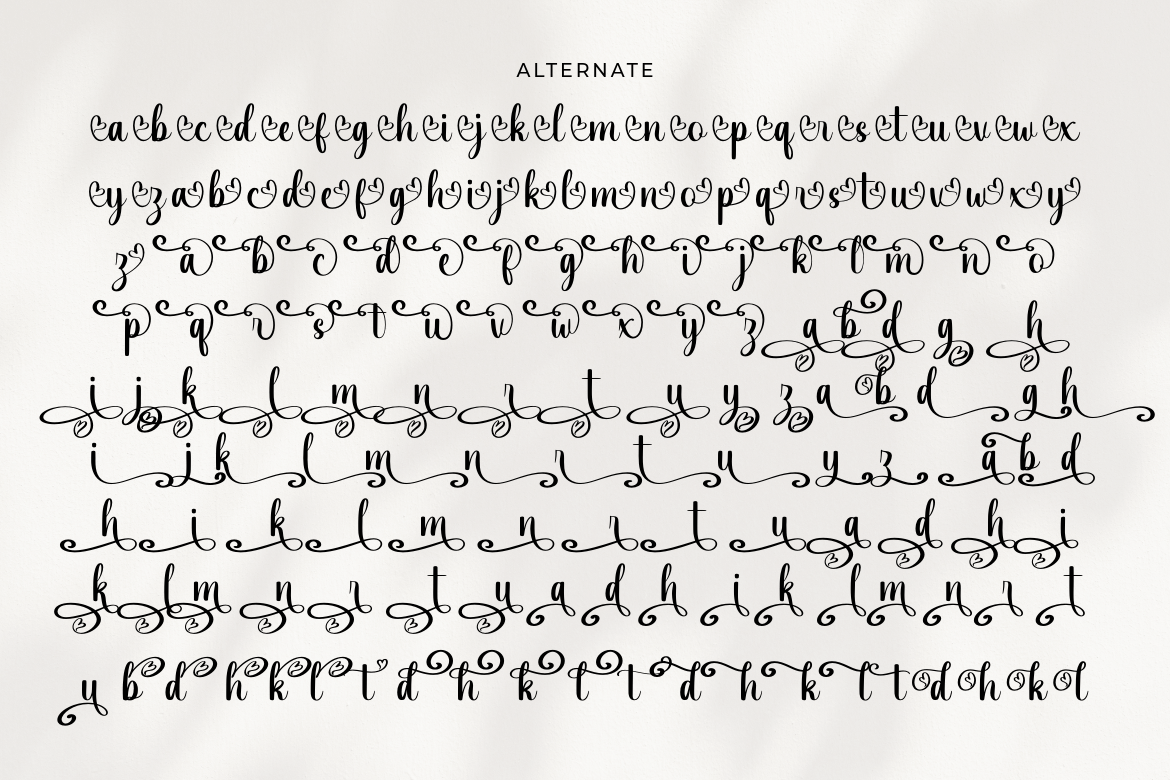 ALTERNATE
ea eb ec ed ee ef eg eh ei ej ek el em en eo ep eq er es et eu ev ew ex
ey ez a b c d e f g h i j k l m n o p q r s t u v w x y
z a b c d e f g h i j k l m n o
p q r s t u v w x y z a b d g h
i j k l m n r t u y z a b d g h
i j k l m n r t u y z a b d
h i k l m n r t u a d h i
k l m n r t u a d h i k l m n r t
u b d h k l t d h k l t d h k l t d h k l